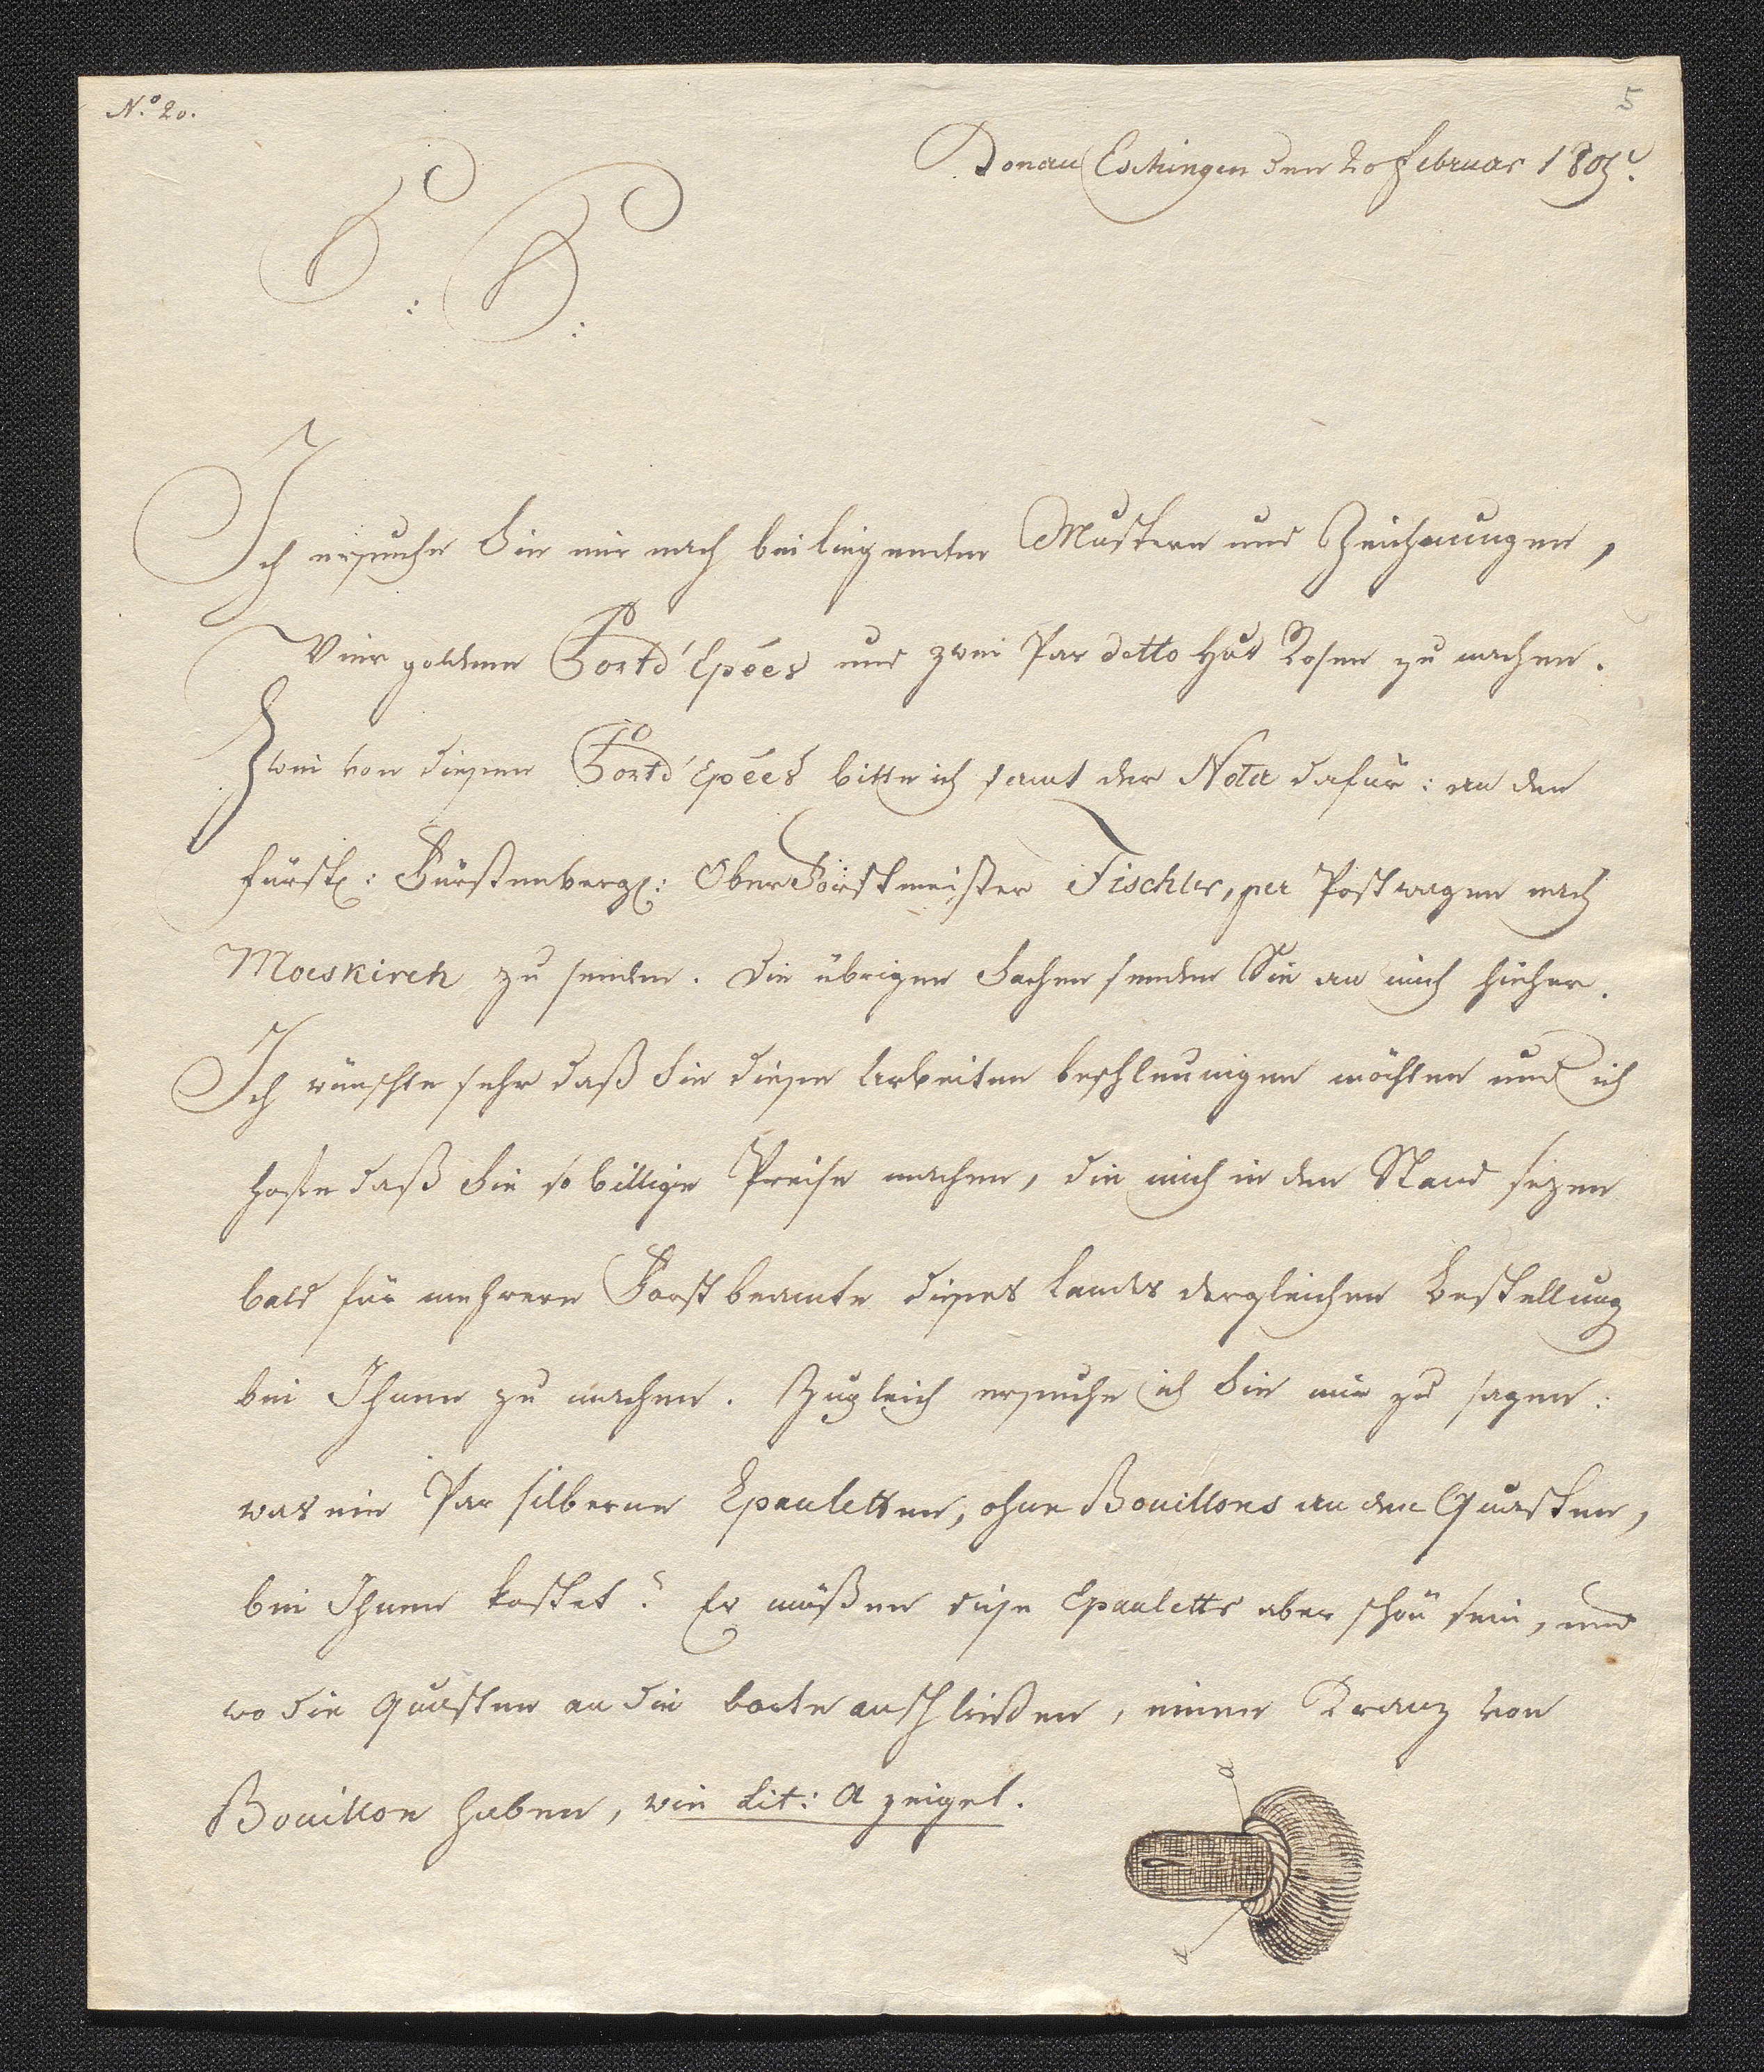 No. 20.
5
Donau Eschingen den 20 Februar 1805.
P: P:
Ich ersuche Sie mir nach beiliegenden Mustern und Zeichnungen,
Vier goldene Portd'Epées und zwei Par detto Hut Rosen zu machen.
Zwei von diesen Portd'Epées bitte ich samt der Nota dafür: an den
fürstl: Fürstenbergl: OberForstmeister Fischler, per Postwagen nach
Moeskirch zu senden. Die übrigen Sachen senden Sie an mich hieher.
Ich wünschte sehr daß Sie diese Arbeiten beschleunigen möchten und ich
hoffe daß Sie so billige Preise machen, die mich in den Stand sezen
bald für mehrere Forstbeamte dieses Landes dergleichen Bestellung
bei Ihnen zu machen. Zugleich ersuche ich Sie mir zu sagen:
was ein Par silberne Epauletten, ohne Bouillons an den Quasten,
bei Ihnen kostet? Es müßen diese Epauletts aber schön sein, und
wo die Quasten an die Borte anschließen, einen Kranz von
Bouillon haben, wie Lit: a zeiget.
a
a